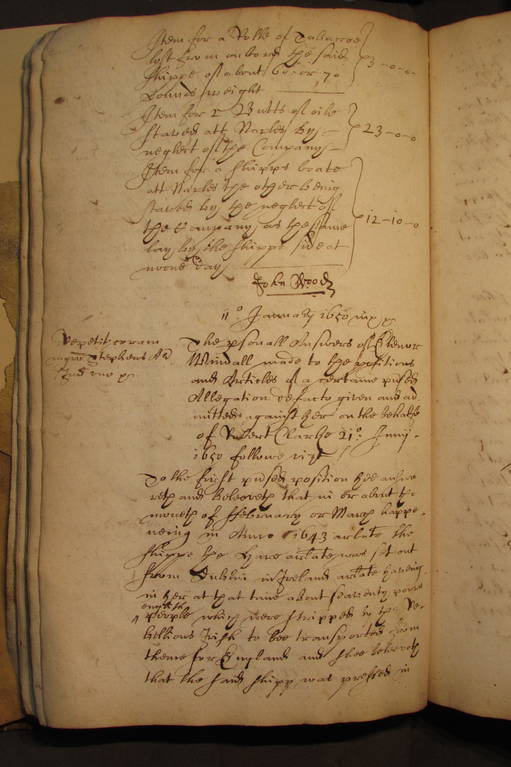 Item for a Rolle of Tobaccoe
lost from on bord the said
shippe of about 60 or 70
pounds weight 3-0-0
Item for 2 Butts of oile
staved att Naples by
neglect of the Company 23-0-0
Item for a shipps boate
att Naples the other being
staved by the neglect of
the Company as the same
lay by the shipps side at
noone day 12-10-0
John Wood
11o January 1650
Repetit coram
Stephens
The psonall Answers of
made to the positions
and Articles of a certaine
Allegation defacto given and ad
mitted against her on the behalfe
of Robert 21o Junij
1650 followe
To the first position shee answe
reth and beleeveth that in or about the
moneth of ffebruary or March happe
ning in Anno 1643 arlate the
shippe the arlate was set out
from Dublin in Ireland arlate having
in her at that time about seaventy poore
English
people which were stripped by the Re
bellious Irish to bee transported from
thence for England and shee beleeveth
that the said shipp was pressed in